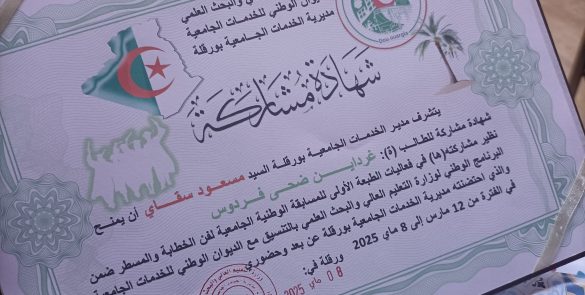 ي والبحث العلمي
ديوان الوطني للخدمات الجامعية
مديرية الخدمات الجامعية بورقلة
Dou ouargla
شهادة مشاركة
يتشرف مدير الخدمات الجامعية بورقلة السيد مسعود سقاي أن يمنح
شهادة مشاركة للطالب (ة): غرداين ضحى فردوس
نظير مشاركته(ها) في فعاليات الطبعة الأولى للمسابقة الوطنية الجامعية لفن الخطابة والمسطر ضمن
البرنامج الوطني لوزارة التعليم العالي والبحث العلمي بالتنسيق مع الديوان الوطني للخدمات الجامعية
والذي احتضنته مديرية الخدمات الجامعية بورقلة عن بعد وحضوري
في الفترة من 12 مارس إلى 8 ماي 2025
ورقلة في:
08 ماي 2025